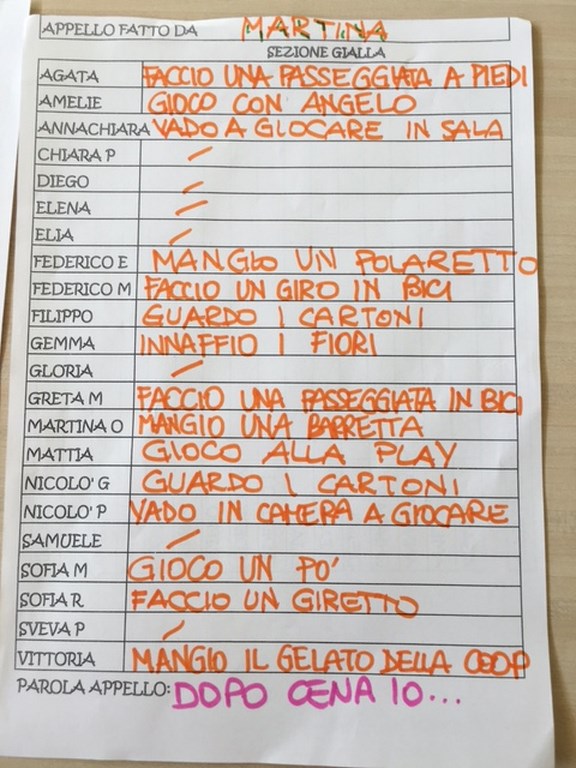 APPELLO FATTO DA MARTINA
SEZIONE GIALLA
AGATA FACCIO UNA PASSEGGIATA A PIEDI
AMELIE GIOCO CON ANGELO
ANNACHIARA VADO A GIOCARE IN SALA
CHIARA P /
DIEGO /
ELENA /
ELIA /
FEDERICO E MANGIO UN POLARETTO
FEDERICO M FACCIO UN GIRO IN BICI
FILIPPO GUARDO I CARTONI
GEMMA INNAFFIO I FIORI
GLORIA /
GRETA M FACCIO UNA PASSEGGIATA IN BICI
MARTINA O MANGIO UNA BARRETTA
MATTIA GIOCO ALLA PLAY
NICOLO' G GUARDO I CARTONI
NICOLO' P VADO IN CAMERA A GIOCARE
SAMUELE /
SOFIA M GIOCO UN PO'
SOFIA R FACCIO UN GIRETTO
SVEVA P /
VITTORIA MANGIO IL GELATO DELLA COOP
PAROLA APPELLO: DOPO CENA IO...